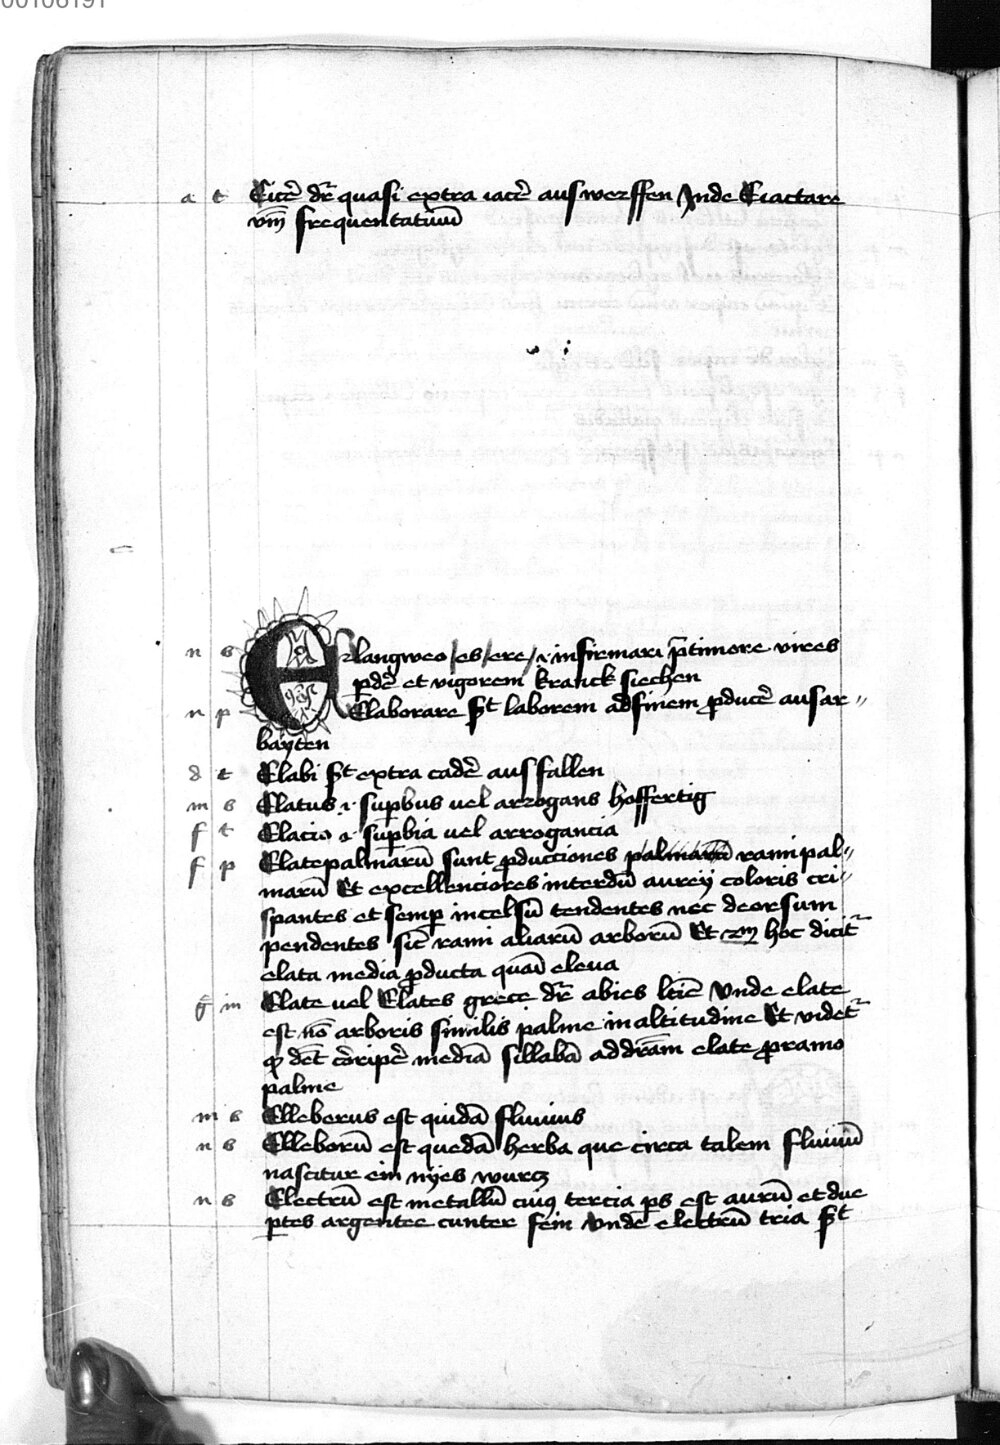 00106191
a t Eicē dr̄ quasi extra iacē aus werffen Inde Eiactare
vm̄ frequentatiuū
n s Elangweo es ere i infirmari p̄ timore vires
p̄dē et vigorem kranck siechen
n p Elaborare st laborem ad finem p̄ducē aus ar〃
bayten
d t Elabi st extra cadē aus fallen
m s Elatus i supbus uel arrogans hoffertig
f t Elacio i supbia uel arrogancia
f p Elate palmarū sunt p̄ducciones palmarū rami pal〃
marū Et excellenciores interdū aurey coloris cri〃
spantes et semp in celsū tendentes nec deorsum
pendentes sic̄ rami aliarū arborū Et hoc dicit̄
elata media p̄ducta quasi eleua
g̅ in Elate uel Elates grece dr̄ abies ltīe vnde elate
est nō arboris similis palme in altitudine Et videt̄
q̄ det cōripē mediā sillabā ad dr̄am elate p̄ ramo
palme
m s Elleborus est quidā fluuius
n s Elleborū est quedā herba que circa talem fluuiū
nascitur ein nyes wurcz
n s Electrū est metallū cuiꝯ tercia ps est aurū et due
p̄tes argentee vnde electrū tria st